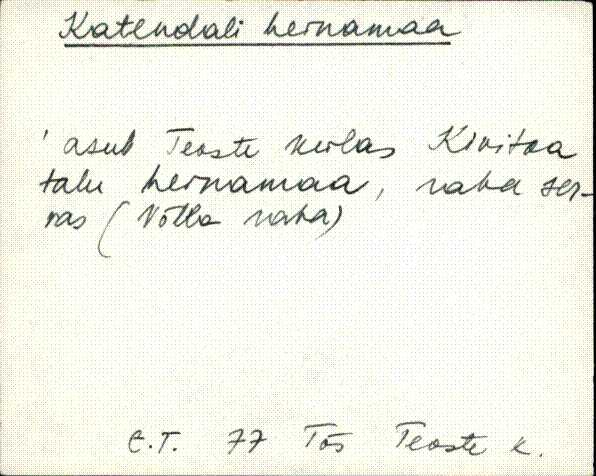 Katendali heinamaa
' asub Teoste külas Kivitoa
talu heinamaa, raba ser-
vas (Võlla raba)
E.T. 77 Tõs Teoste k.